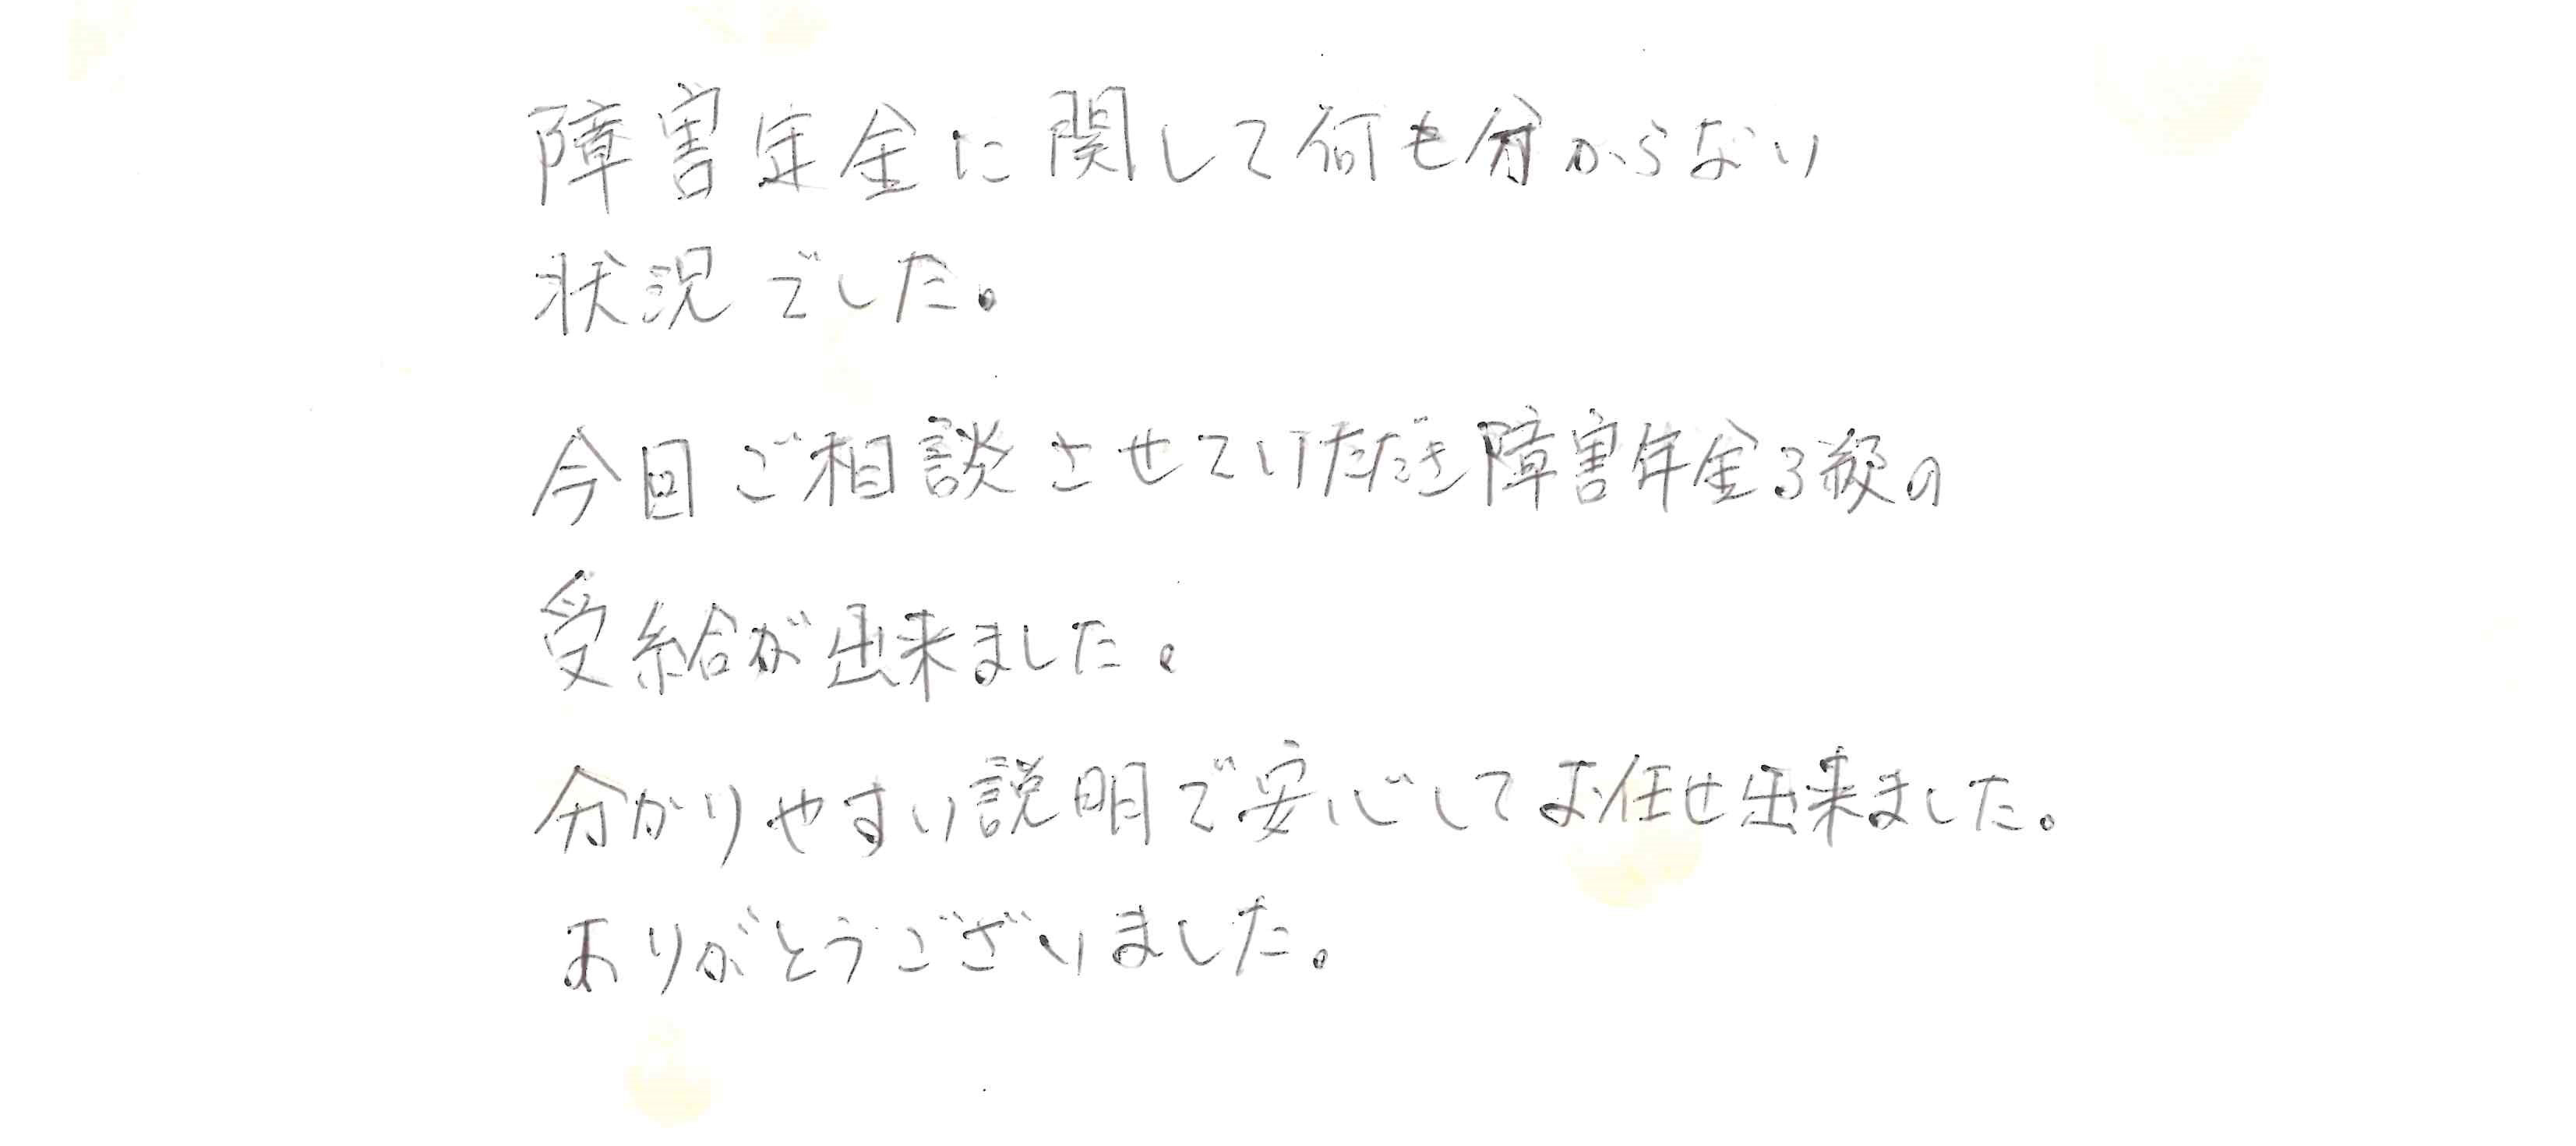 障害年金に関して何も分からない
状況でした。
今回ご相談させていただき障害年金3級の
受給が出来ました。
分かりやすい説明で安心してお任せ出来ました。
ありがとうございました。